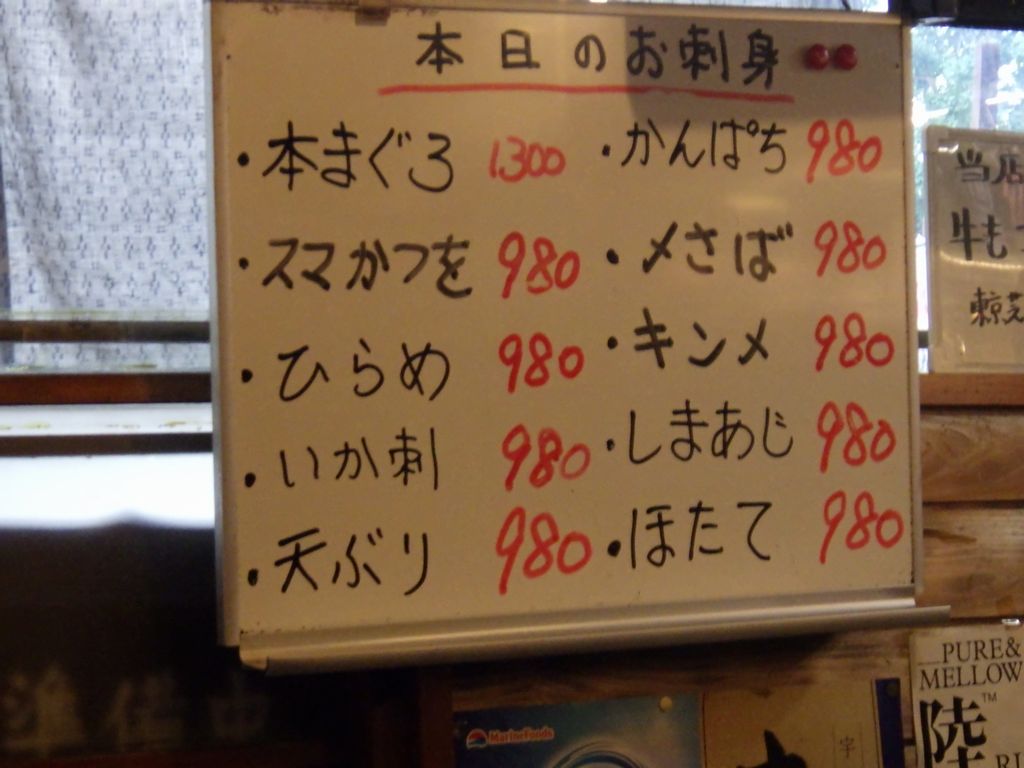 本日のお刺身
・本まぐろ 1300
・スマかつを 980
・ひらめ 980
・いか刺 980
・天ぶり 980
・かんぱち 980
・〆さば 980
・キンメ 980
・しまあじ 980
・ほたて 980
当店
牛も
東京芝
準備中
MarineFoods
字
PURE&
MELLOW
陸™
RI